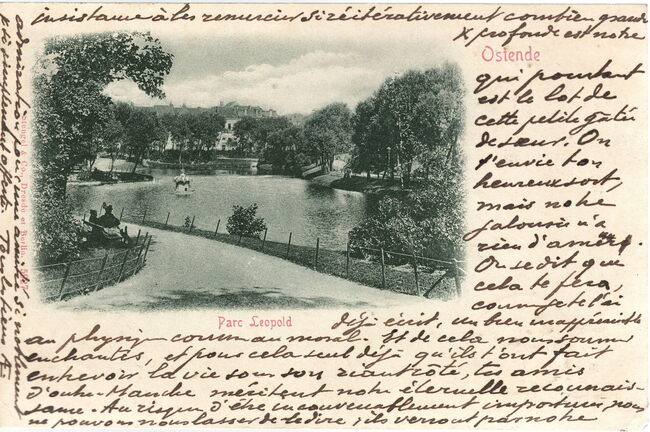 Ostende
qui pourtant
est le lot de
cette petite gâtée
de sœur. On
t'envie ton
heureux sort,
mais notre
jalousie n'a
rien d'amer.
On se dit que
cela te fera,
comme je t'ai
Parc Leopold
déjà écrit, un bien inappréciable
au physique comme au moral. Et de cela nous sommes
enchantés, et pour cela seul déjà qu'ils t'ont fait
entrevoir la vie sous son vrai côté, tes amis
d'outre-Manche méritent notre éternelle reconnais-
sance. Au risque d'être inconvenablement importuns, nous
ne pouvons nous lasser de le dire; ils verront par notre
insistance à les remercier si réitérativement combien grande
x profonde est notre
admiration